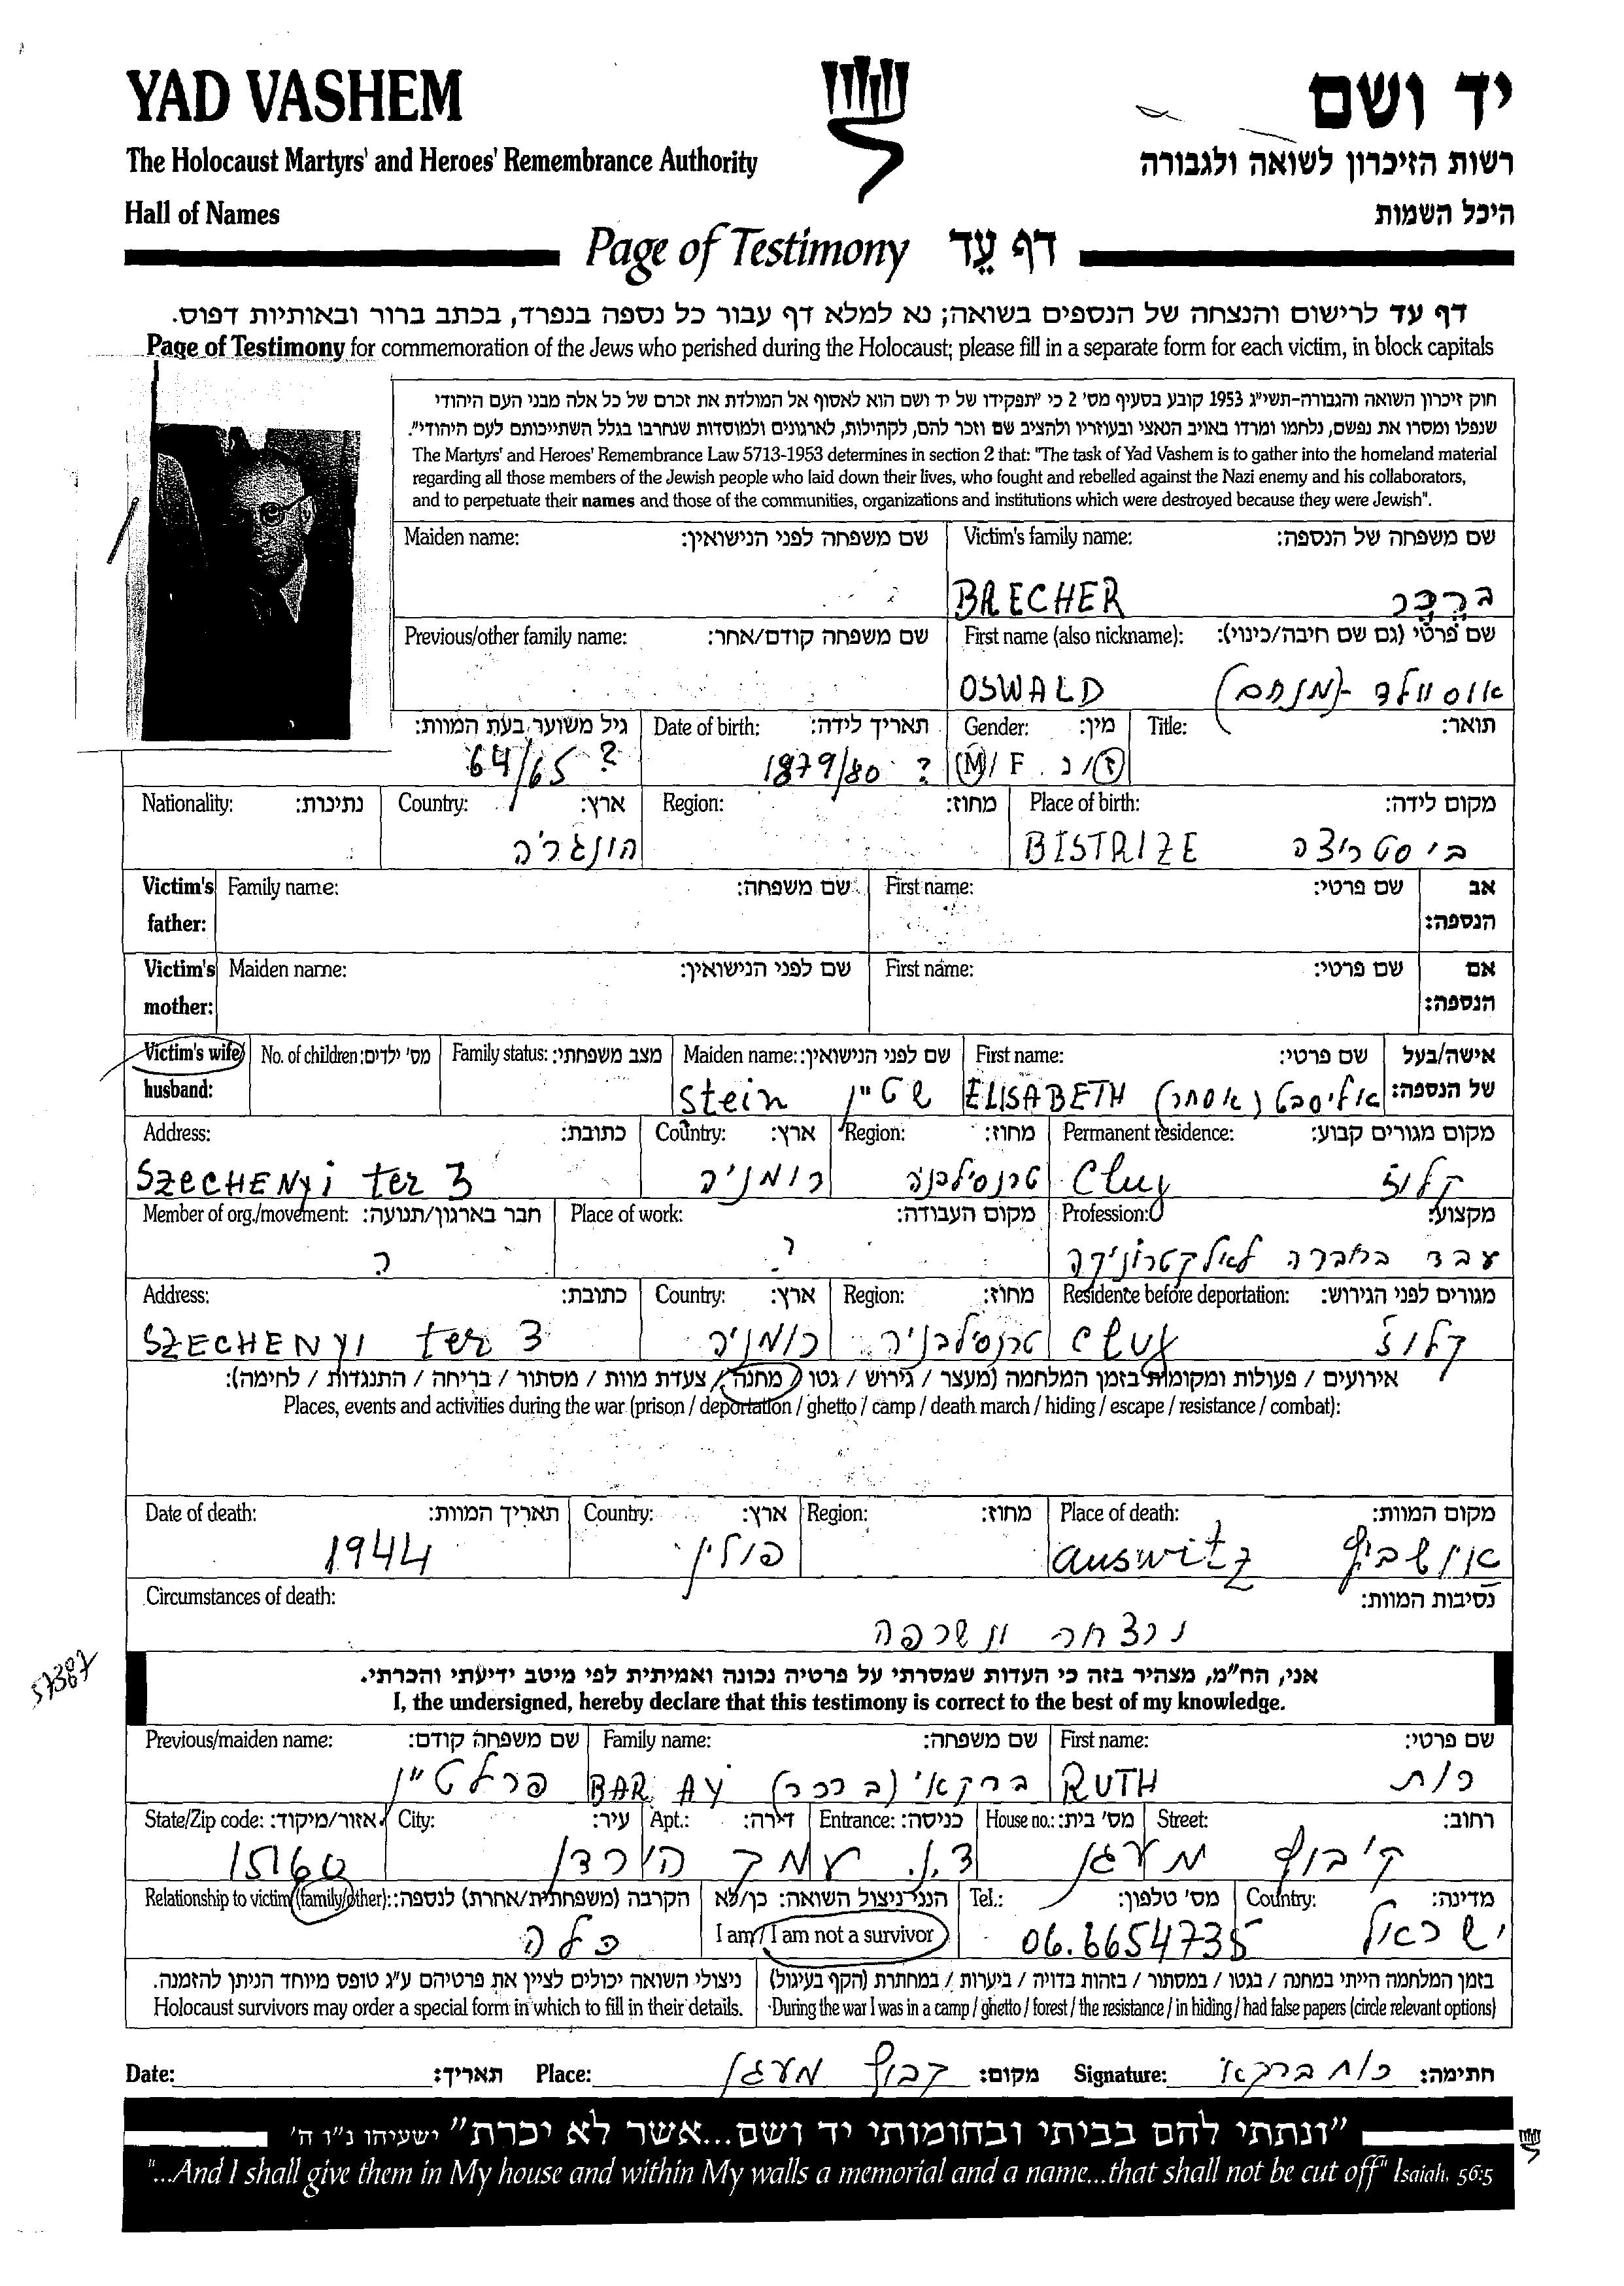 YAD VASHEM
יד ושם
The Holocaust Martyrs' and Heroes' Remembrance Authority
רשות הזיכרון לשואה ולגבורה
Hall of Names
היכל השמות
Page of Testimony דף עֵד
דף עד לרישום והנצחה של הנספים בשואה; נא למלא דף עבור כל נספה בנפרד, בכתב ברור ובאותיות דפוס.
Page of Testimony for commemoration of the Jews who perished during the Holocaust; please fill in a separate form for each victim, in block capitals
חוק זיכרון השואה והגבורה-תשי״ג 1953 קובע בסעיף מס' 2 כי ״תפקידו של יד ושם הוא לאסוף אל המולדת את זכרם של כל אלה מבני העם היהודי
שנפלו ומסרו את נפשם, נלחמו ומרדו באויב הנאצי ובעוזריו ולהציב שם וזכר להם, לקהילות, לארגונים ולמוסדות שנחרבו בגלל השתייכותם לעם היהודי״.
The Martyrs' and Heroes' Remembrance Law 5713-1953 determines in section 2 that: "The task of Yad Vashem is to gather into the homeland material
regarding all those members of the Jewish people who laid down their lives, who fought and rebelled against the Nazi enemy and his collaborators,
and to perpetuate their names and those of the communities, organizations and institutions which were destroyed because they were Jewish".
Maiden name: שם משפחה לפני הנישואין: Victim's family name: שם משפחה של הנספה:
BRECHER ברכר
Previous/other family name: שם משפחה קודם/אחר: First name (also nickname): שם פרטי (גם שם חיבה/כינוי):
OSWALD אוסוולד -(מנחם)
גיל משוער בעת המוות: Date of birth: תאריך לידה: Gender: מין: Title: תואר:
64/65 ? 1879/80 ? M/F ז/נ
Nationality: נתינות: Country: ארץ: Region: מחוז: Place of birth: מקום לידה:
הונגריה BISTRIZE ביסטריצה
Victim's Family name: שם משפחה: First name: שם פרטי: אב
father: הנספה:
Victim's Maiden name: שם לפני הנישואין: First name: שם פרטי: אם
mother: הנספה:
Victim's wife/ No. of children: מס' ילדים: Family status: מצב משפחתי: Maiden name: שם לפני הנישואין: First name: שם פרטי: אישה/בעל
husband: Stein שטיין ELISABETH אליסבט (אסתר) של הנספה:
Address: כתובת: Country: ארץ: Region: מחוז: Permanent residence: מקום מגורים קבוע:
SZECHENYi ter 3 רומניה טרנסילבניה Cluj קלוז
Member of org./movement: חבר בארגון/תנועה: Place of work: מקום העבודה: Profession: מקצוע:
? ? עבד בחברה לאלקטרוניקה
Address: כתובת: Country: ארץ: Region: מחוז: Residence before deportation: מגורים לפני הגירוש:
SZECHENYI ter 3 רומניה טרנסילבניה Cluj קלוז
אירועים / פעולות ומקומות בזמן המלחמה (מעצר / גירוש / גטו / מחנה / צעדת מוות / מסתור / בריחה / התנגדות / לחימה):
Places, events and activities during the war (prison / deportation / ghetto / camp / death march / hiding / escape / resistance / combat):
Date of death: תאריך המוות: Country: ארץ: Region: מחוז: Place of death: מקום המוות:
1944 פולין auswitz אושביץ
Circumstances of death: נסיבות המוות:
נרצחה ונשרפה
57387
אני, הח״מ, מצהיר בזה כי העדות שמסרתי על פרטיה נכונה ואמיתית לפי מיטב ידיעתי והכרתי.
I, the undersigned, hereby declare that this testimony is correct to the best of my knowledge.
Previous/maiden name: שם משפחה קודם: Family name: שם משפחה: First name: שם פרטי:
פרלשטיין BAR AY ברקאי (ברכר) RUTH רות
State/Zip code: אזור/מיקוד: City: עיר: Apt.: דירה: Entrance: כניסה: House no.: מס' בית: Street: רחוב:
15160 ד.נ. עמק הירדן קיבוץ מעגן
Relationship to victim (family/other): הקרבה (משפחתית/אחרת) לנספה: הנני ניצול השואה: כן/לא Tel.: מס' טלפון: Country: מדינה:
כלה I am / I am not a survivor 06.6654735 ישראל
ניצולי השואה יכולים לציין את פרטיהם ע״ג טופס מיוחד הניתן להזמנה. בזמן המלחמה הייתי במחנה / בגטו / במסתור / בזהות בדויה / ביערות / במחתרת (הקף בעיגול)
Holocaust survivors may order a special form in which to fill in their details. During the war I was in a camp / ghetto / forest / the resistance / in hiding / had false papers (circle relevant options)
Date: תאריך: Place: קבוץ מעגן מקום: Signature: רות ברקאי חתימה:
״ונתתי להם בביתי ובחומותי יד ושם...אשר לא יכרת״ ישעיהו נ״ו ה'
"...And I shall give them in My house and within My walls a memorial and a name...that shall not be cut off" Isaiah, 56:5